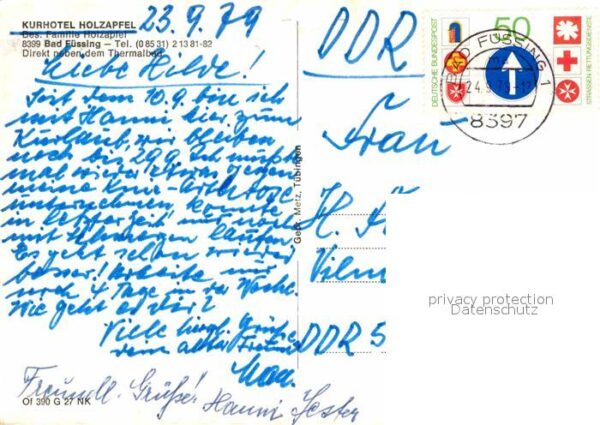 KURHOTEL HOLZAPFEL
Bes. Familie Holzapfel
8399 Bad Füssing – Tel. (08531) 213 81-82
Direkt neben dem Thermalbad
23.9.79
Liebe Hilde!
Seit dem 10.9. bin ich
mit Hanni hier zum
Kurlaub, wir bleiben
noch bis 29.9. Ich mußte
mal wieder etwas gegen
meine Knie-Arthrose
unternehmen, konnte
in letzter Zeit nur noch
mit Schmerzen laufen.
Es geht schon wieder
besser! Arbeite nur
noch 4 Tage in der Woche.
Wie geht es dir?
Viele herzl. Grüße
dein alter Freund
Max.
Freundl. Grüße! Hanni
Of 390 G 27 NK
Gebr. Metz, Tübingen
DDR
Frau
H.
DDR 5
DEUTSCHE BUNDESPOST
50
STRASSEN-RETTUNGSDIENSTE
BAD FÜSSING 1
24.9.79
8397
privacy protection
Datenschutz